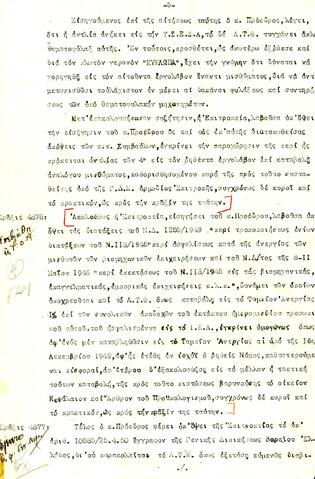 -8-
Εἰσηγούμενος ἐπί τῆς αἰτήσεως ταύτης ὁ κ. Πρόεδρος, λέγει,
ὅτι ἡ ἀντλία ἀνήκει εἰς τήν Υ.Σ.Ε.Σ.Α, τό δέ Λ.Τ.Θ. τυγχάνει ἁπλῶς
θεματοφύλαξ αὐτῆς. Ἐν τούτοις, προσθέτει, ὡς ἀνωτέρω ἐξέθεσε καί
διά τόν πλωτόν γερανόν "ΚΥΚΛΩΠΑ", ἔχει τήν γνώμην ὅτι δύναται νά
χορηγηθῇ εἰς τόν αἰτοῦντα ἐργολάβον ἔναντι μισθώματος, διά νά ἀντι
μετωπισθοῦν τοὐλάχιστον ἐν μέρει αἱ δαπάναι φυλάξεως καί συντηρή
σεως τῶν ὑπό θεματοφυλακήν μηχανημάτων.
Μετ' ἐπακολουθήσασαν συζήτησιν, ἡ Ἐπιτροπεία, λαβοῦσα ὑπ' ὄψει
τήν εἰσήγησιν τοῦ κ. Προέδρου ὡς καί τάς ἐπ' αὐτῆς διατυπωθείσας
ἀπόψεις τῶν κ.κ. Συμβούλων, ἐγκρίνει τήν παραχώρησιν τῆς περί ἧς
πρόκειται ἀντλίας τῶν 4" εἰς τόν ῥηθέντα ἐργολάβον ἐπί καταβολῇ
ἀναλόγου μισθώματος, καθορισθησομένου παρά τῆς πρός τοῦτο συστά
σης ὑπό τῆς Ἁρμοδίας Ἐπιτροπῆς, συγχρόνως δέ κυροῖ καί
τό πρακτικόν, ὡς πρός τήν πρᾶξιν της ταύτην.
Πρᾶξις 4676: Ἀκολούθως ἡ Ἐπιτροπεία, εἰσηγήσει τοῦ κ. Προέδρου, λαβοῦσα ὑπ'
ὄψει τάς διατάξεις τοῦ Ν.Δ. 1250/1949 "περί τροποποιήσεως ἐνίων
διατάξεων τοῦ Ν. 118/1945 "περί ἀσφαλίσεως κατά τῆς ἀνεργίας τῶν
μισθωτῶν τῶν βιομηχανικῶν ἐπιχειρήσεων καί τοῦ Ν.Δ/τος τῆς 8-11
Μαΐου 1946 "περί ἐπεκτάσεως τοῦ Ν. 118/1945 εἰς τάς βιομηχανικάς,
ἐπαγγελματικάς, ἐμπορικάς ἐπιχειρήσεις κ.λ.π.", δυνάμει τῶν ὁποίων
ὑποχρεοῦται καί τό Λ.Τ.Θ. ὅπως καταβάλῃ εἰς τό Ταμεῖον Ἀνεργίας
1% ἐπί τῶν συνολικῶν ἀποδοχῶν τοῦ ἐκτάκτου ἡμερομισθίου προσωπι
κοῦ αὐτοῦ, τοῦ ἠσφαλισμένου εἰς τό Ι.Κ.Α., ἐγκρίνει ὁμοφώνως ὅπως
ἀφ' ἑνός μέν καταβληθῶσιν εἰς τό Ταμεῖον Ἀνεργίας αἱ ἀπό τῆς 1ης
Δεκεμβρίου 1949, ἀφ' ἧς ἐτέθη ἐν ἰσχύϊ ὁ ῥηθείς Νόμος, καθυστερούμε
ναι εἰσφοραί, ἀφ' ἑτέρου δ' ἐξακολουθήσῃ εἰς τό μέλλον ἡ τακτική
τούτων καταβολή, τῆς πρός τοῦτο πιστώσεως βαρυνούσης τό οἰκεῖον
Κεφάλαιον καί Ἄρθρον τοῦ Προϋπολογισμοῦ, συγχρόνως δέ κυροῖ καί
τό πρακτικόν, ὡς πρός τήν πρᾶξιν της ταύτην.
Πρᾶξις 4677: Τέλος ὁ κ. Πρόεδρος φέρει ὑπ' ὄψει τῆς Ἐπιτροπείας τό ὑπ'
ἀριθ. 10585/25.4.50 ἔγγραφον τῆς Γενικῆς Διοικήσεως Βορείου Ἑλ
λάδος, δι' οὗ παρακαλεῖται τό Λ.Τ.Θ. ὅπως ἐξετάσῃ εὐμενῶς διαβι-
./.